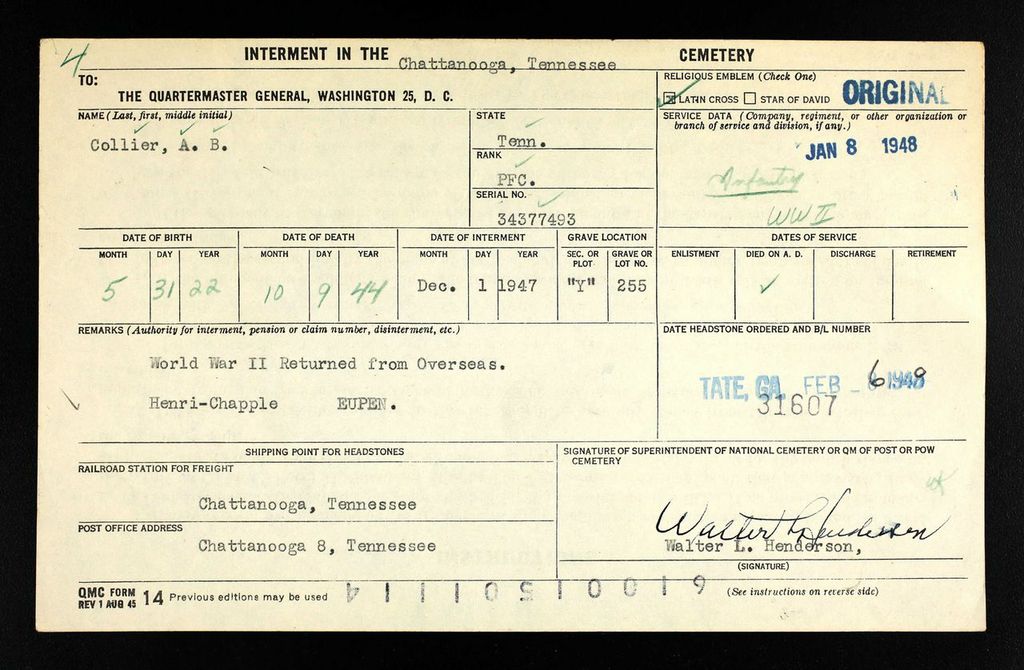 4
INTERMENT IN THE Chattanooga, Tennessee CEMETERY
TO:
THE QUARTERMASTER GENERAL, WASHINGTON 25, D. C.
RELIGIOUS EMBLEM (Check One)
☒ LATIN CROSS ☐ STAR OF DAVID
ORIGINAL
NAME (Last, first, middle initial)
Collier, A. B.
STATE
Tenn.
RANK
PFC.
SERIAL NO.
34377493
SERVICE DATA (Company, regiment, or other organization or
branch of service and division, if any.)
JAN 8 1948
Infantry
WW II
DATE OF BIRTH
MONTH DAY YEAR
5 31 22
DATE OF DEATH
MONTH DAY YEAR
10 9 44
DATE OF INTERMENT
MONTH DAY YEAR
Dec. 1 1947
GRAVE LOCATION
SEC. OR PLOT GRAVE OR LOT NO.
"Y" 255
DATES OF SERVICE
ENLISTMENT DIED ON A. D. DISCHARGE RETIREMENT
✓
REMARKS (Authority for interment, pension or claim number, disinterment, etc.)
World War II Returned from Overseas.
Henri-Chapple EUPEN.
DATE HEADSTONE ORDERED AND B/L NUMBER
TATE, GA. FEB - 6 1948
31607
SHIPPING POINT FOR HEADSTONES
RAILROAD STATION FOR FREIGHT
Chattanooga, Tennessee
POST OFFICE ADDRESS
Chattanooga 8, Tennessee
SIGNATURE OF SUPERINTENDENT OF NATIONAL CEMETERY OR QM OF POST OR POW
CEMETERY
Walter L. Henderson
Walter L. Henderson,
(SIGNATURE)
QMC FORM
REV 1 AUG 45 14 Previous editions may be used
(See instructions on reverse side)